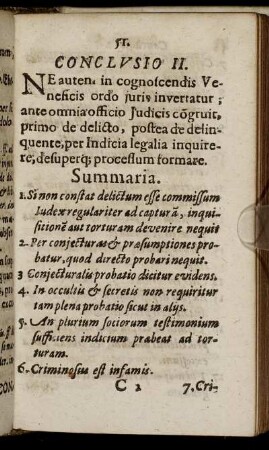 51.
CONCLVSIO II.
NE autem in cognoscendis Ve-
neficis ordo juris invertatur;
ante omnia officio Judicis cõgruit,
primo de delicto, postea de delin-
quente, per Indicia legalia inquire-
re, desuperq; processum formare.
Summaria.
1. Si non constat delictum esse commissum
Iudex regulariter ad capturã, inqui-
sitionẽ aut torturam devenire nequit
2. Per conjecturas & præsumptiones pro-
batur, quod directo probari nequit.
3 Conjecturalis probatio dicitur evidens.
4. In occultis & secretis non requiritur
tam plena probatio sicut in alijs.
5. An plurium sociorum testimonium
sufficiens indicium præbeat ad tor-
turam.
6. Criminosus est infamis.
C 2 7. Cri-